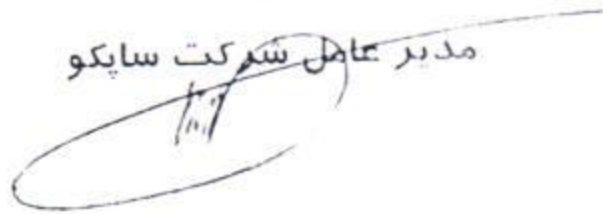 مدیر عامل شرکت ساپکو